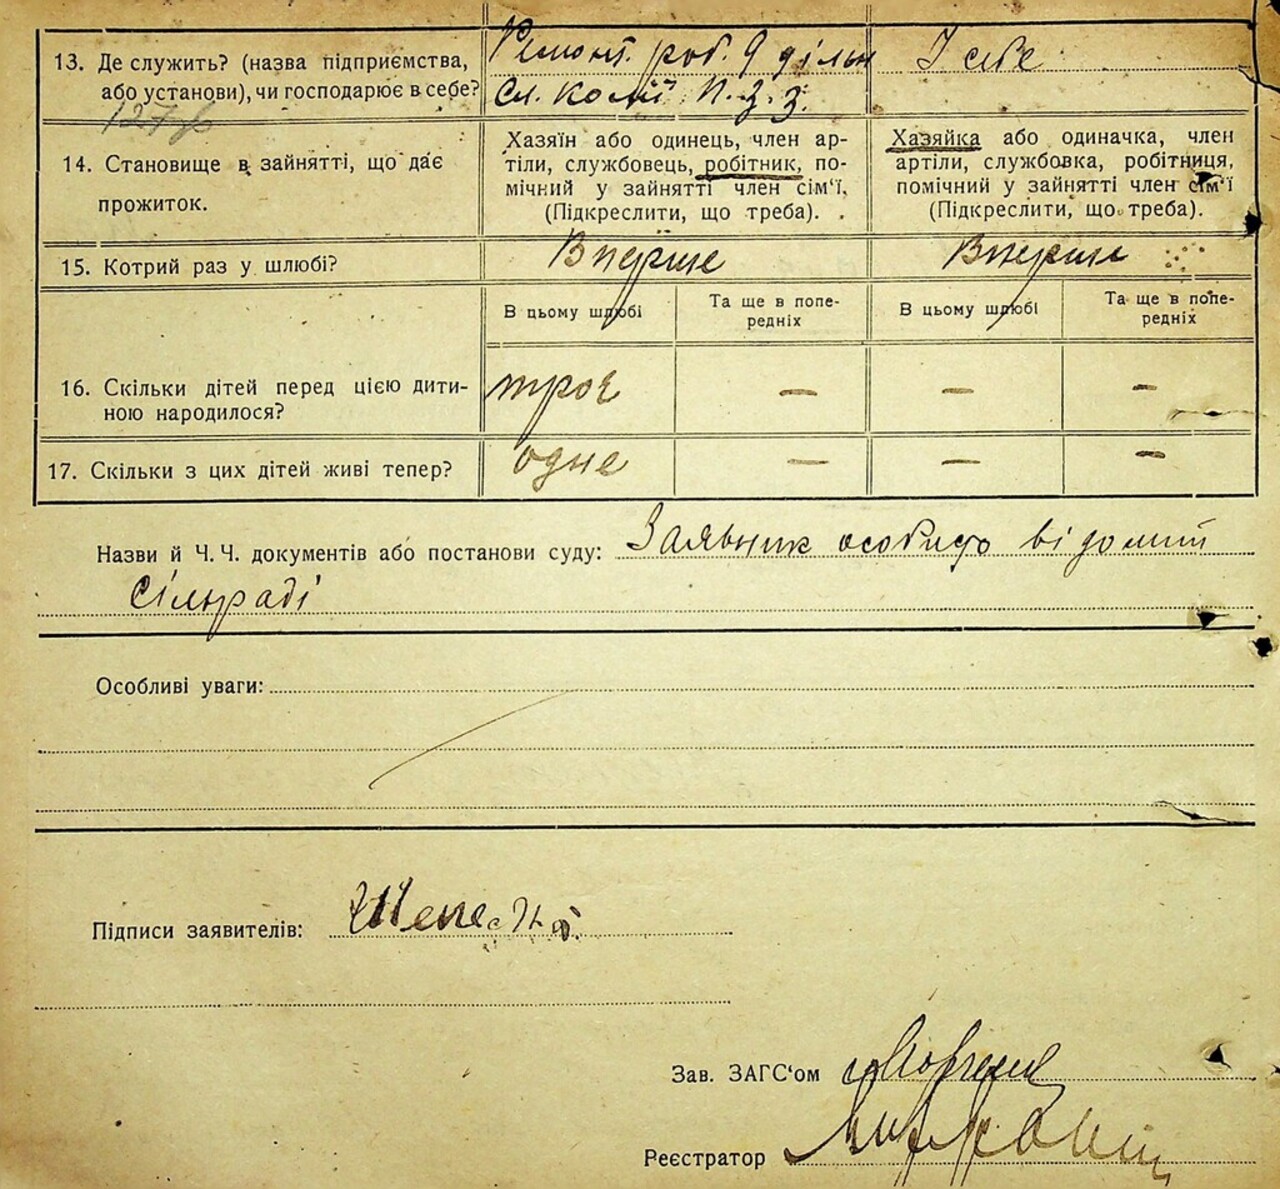 13. Де служить? (назва підприємства,
або установи), чи господарює в себе?
Ремонт. роб. 9 дільн
Сл. колії П.З.З.
У себе
127
14. Становище в зайнятті, що дає
прожиток.
Хазяїн або одинець, член ар-
тіли, службовець, робітник, по-
мічний у зайнятті член сім‘ї.
(Підкреслити, що треба).
Хазяйка або одиначка, член
артіли, службовка, робітниця,
помічний у зайнятті член сім‘ї
(Підкреслити, що треба).
15. Котрий раз у шлюбі?
Вперше
Вперше
В цьому шлюбі
Та ще в попе-
редніх
В цьому шлюбі
Та ще в попе-
редніх
16. Скільки дітей перед цією дити-
ною народилося?
троє — — —
17. Скільки з цих дітей живі тепер?
одне — — —
Назви й Ч.Ч. документів або постанови суду: Заявник особисто відомий
сільраді
Особливі уваги:
Підписи заявителів:
Зав. ЗАГС‘ом
Реєстратор